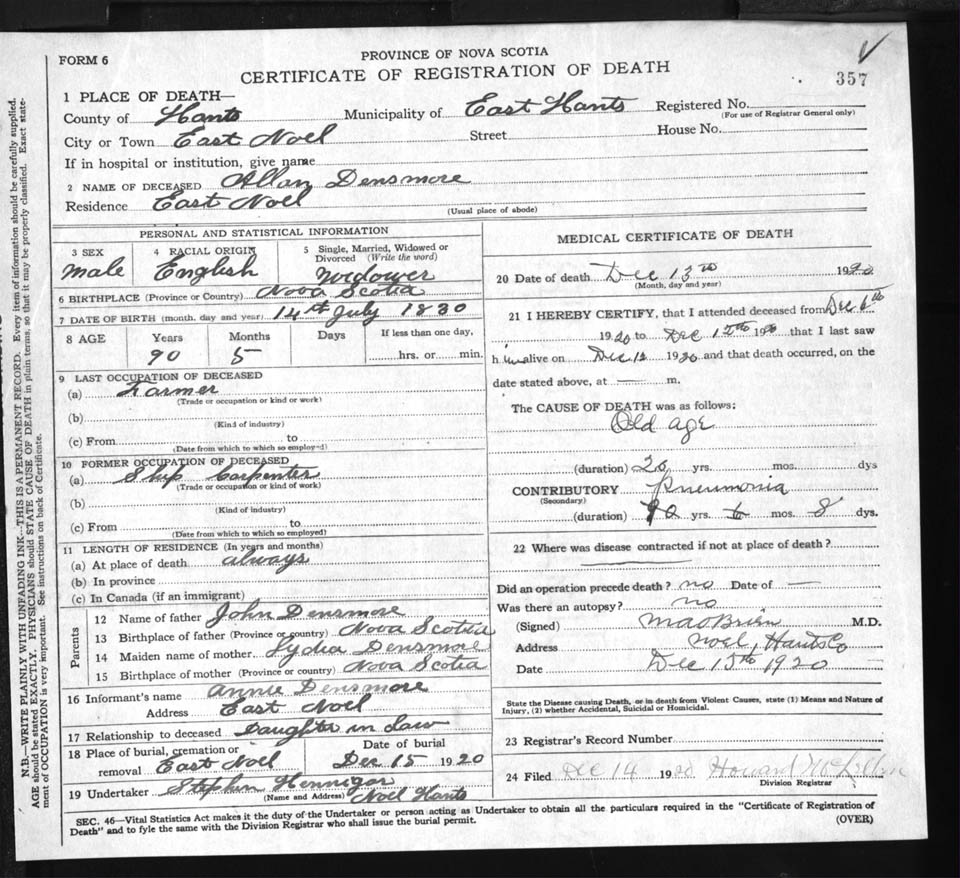 FORM 6
PROVINCE OF NOVA SCOTIA
CERTIFICATE OF REGISTRATION OF DEATH
357
1 PLACE OF DEATH—
County of Hants Municipality of East Hants Registered No.
(For use of Registrar General only)
City or Town East Noel Street House No.
If in hospital or institution, give name
2 NAME OF DECEASED Allan Densmore
Residence East Noel
(Usual place of abode)
PERSONAL AND STATISTICAL INFORMATION
3 SEX
male
4 RACIAL ORIGIN
English
5 Single, Married, Widowed or Divorced (Write the word)
Widower
6 BIRTHPLACE (Province or Country) Nova Scotia
7 DATE OF BIRTH (month, day and year) 14th July 1830
8 AGE Years Months Days If less than one day,
90 5 hrs. or min.
9 LAST OCCUPATION OF DECEASED
(a) Farmer
(Trade or occupation or kind or work)
(b)
(Kind of industry)
(c) From to
(Date from which to which so employed)
10 FORMER OCCUPATION OF DECEASED
(a) Ship Carpenter
(Trade or occupation or kind of work)
(b)
(Kind of industry)
(c) From to
(Date from which to which so employed)
11 LENGTH OF RESIDENCE (In years and months)
(a) At place of death always
(b) In province
(c) In Canada (if an immigrant)
Parents
12 Name of father John Densmore
13 Birthplace of father (Province or country) Nova Scotia
14 Maiden name of mother Lydia Densmore
15 Birthplace of mother (Province or country) Nova Scotia
16 Informant's name Annie Densmore
Address East Noel
17 Relationship to deceased Daughter in Law
18 Place of burial, cremation or removal East Noel
Date of burial
Dec 15 1920
19 Undertaker Stephen Hennigar
(Name and Address) Noel Hants
MEDICAL CERTIFICATE OF DEATH
20 Date of death Dec 13th 1920
(Month, day and year)
21 I HEREBY CERTIFY, that I attended deceased from Dec 6th
1920 to Dec 12th 1920 that I last saw
him alive on Dec 12 1920 and that death occurred, on the
date stated above, at — m.
The CAUSE OF DEATH was as follows:
Old age
(duration) 20 yrs. mos. dys
CONTRIBUTORY Pneumonia
(Secondary)
(duration) yrs. mos. 8 dys.
22 Where was disease contracted if not at place of death?
Did an operation precede death? no Date of —
Was there an autopsy? no
(Signed) M.D.
Address Noel, Hants Co
Date Dec 15th 1920
State the Disease causing Death, or in death from Violent Causes, state (1) Means and Nature of
Injury, (2) whether Accidental, Suicidal or Homicidal.
23 Registrar's Record Number
24 Filed Dec 14 1920 Howard
Division Registrar
SEC. 46—Vital Statistics Act makes it the duty of the Undertaker or person acting as Undertaker to obtain all the particulars required in the "Certificate of Registration of
Death" and to fyle the same with the Division Registrar who shall issue the burial permit.
(OVER)
N.B.—WRITE PLAINLY WITH UNFADING INK—THIS IS A PERMANENT RECORD. Every item of information should be carefully supplied.
AGE should be stated EXACTLY. PHYSICIANS should STATE CAUSE OF DEATH in plain terms, so that it may be properly classified. Exact state-
ment of OCCUPATION is very important. See instructions on back of Certificate.